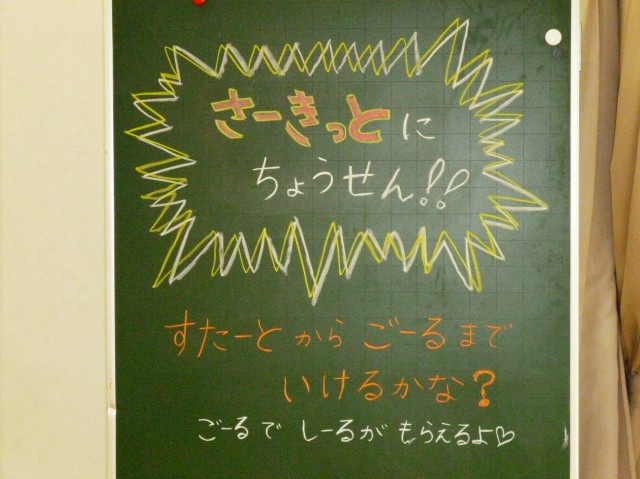 さーきっとに
ちょうせん!!
すたーとからごーるまで
いけるかな?
ごーるでしーるがもらえるよ♡